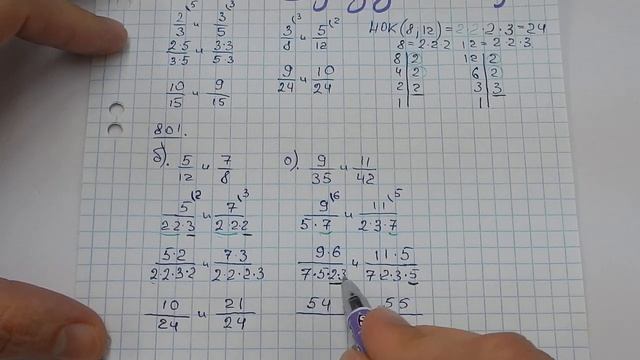 2/3 (5 и 3/5 (3
2·5/3·5 и 3·3/5·3
10/15 и 9/15
3/8 (3 и 5/12 (2
9/24 и 10/24
НОК (8, 12) = 2·2·2·3 = 24
8 = 2·2·2 12 = 2·2·3
8 | 2 12 | 2
4 | 2 6 | 2
2 | 2 3 | 3
1 | 1 |
801.
б). 5/12 и 7/8
5/2·2·3 (2 и 7/2·2·2 (3
5·2/2·2·3·2 и 7·3/2·2·2·3
10/24 и 21/24
о). 9/35 и 11/42
9/5·7 (6 и 11/2·3·7 (5
9·6/7·5·2·3 и 11·5/7·2·3·5
54 55